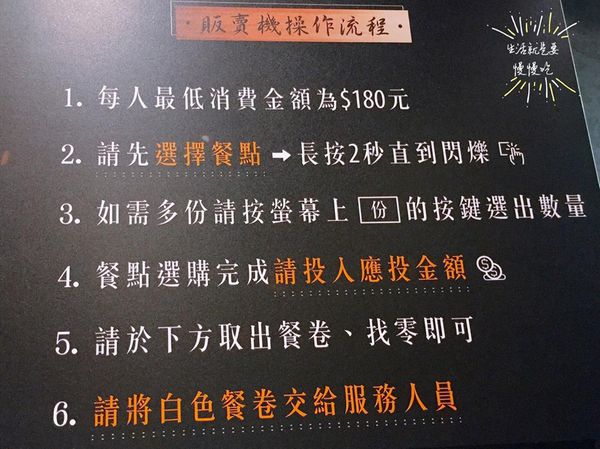 ·販賣機操作流程·
生活就是要
慢慢吃
1. 每人最低消費金額為$180元
2. 請先選擇餐點➡長按2秒直到閃爍
3. 如需多份請按螢幕上 份 的按鍵選出數量
4. 餐點選購完成請投入應投金額
5. 請於下方取出餐卷、找零即可
6. 請將白色餐卷交給服務人員